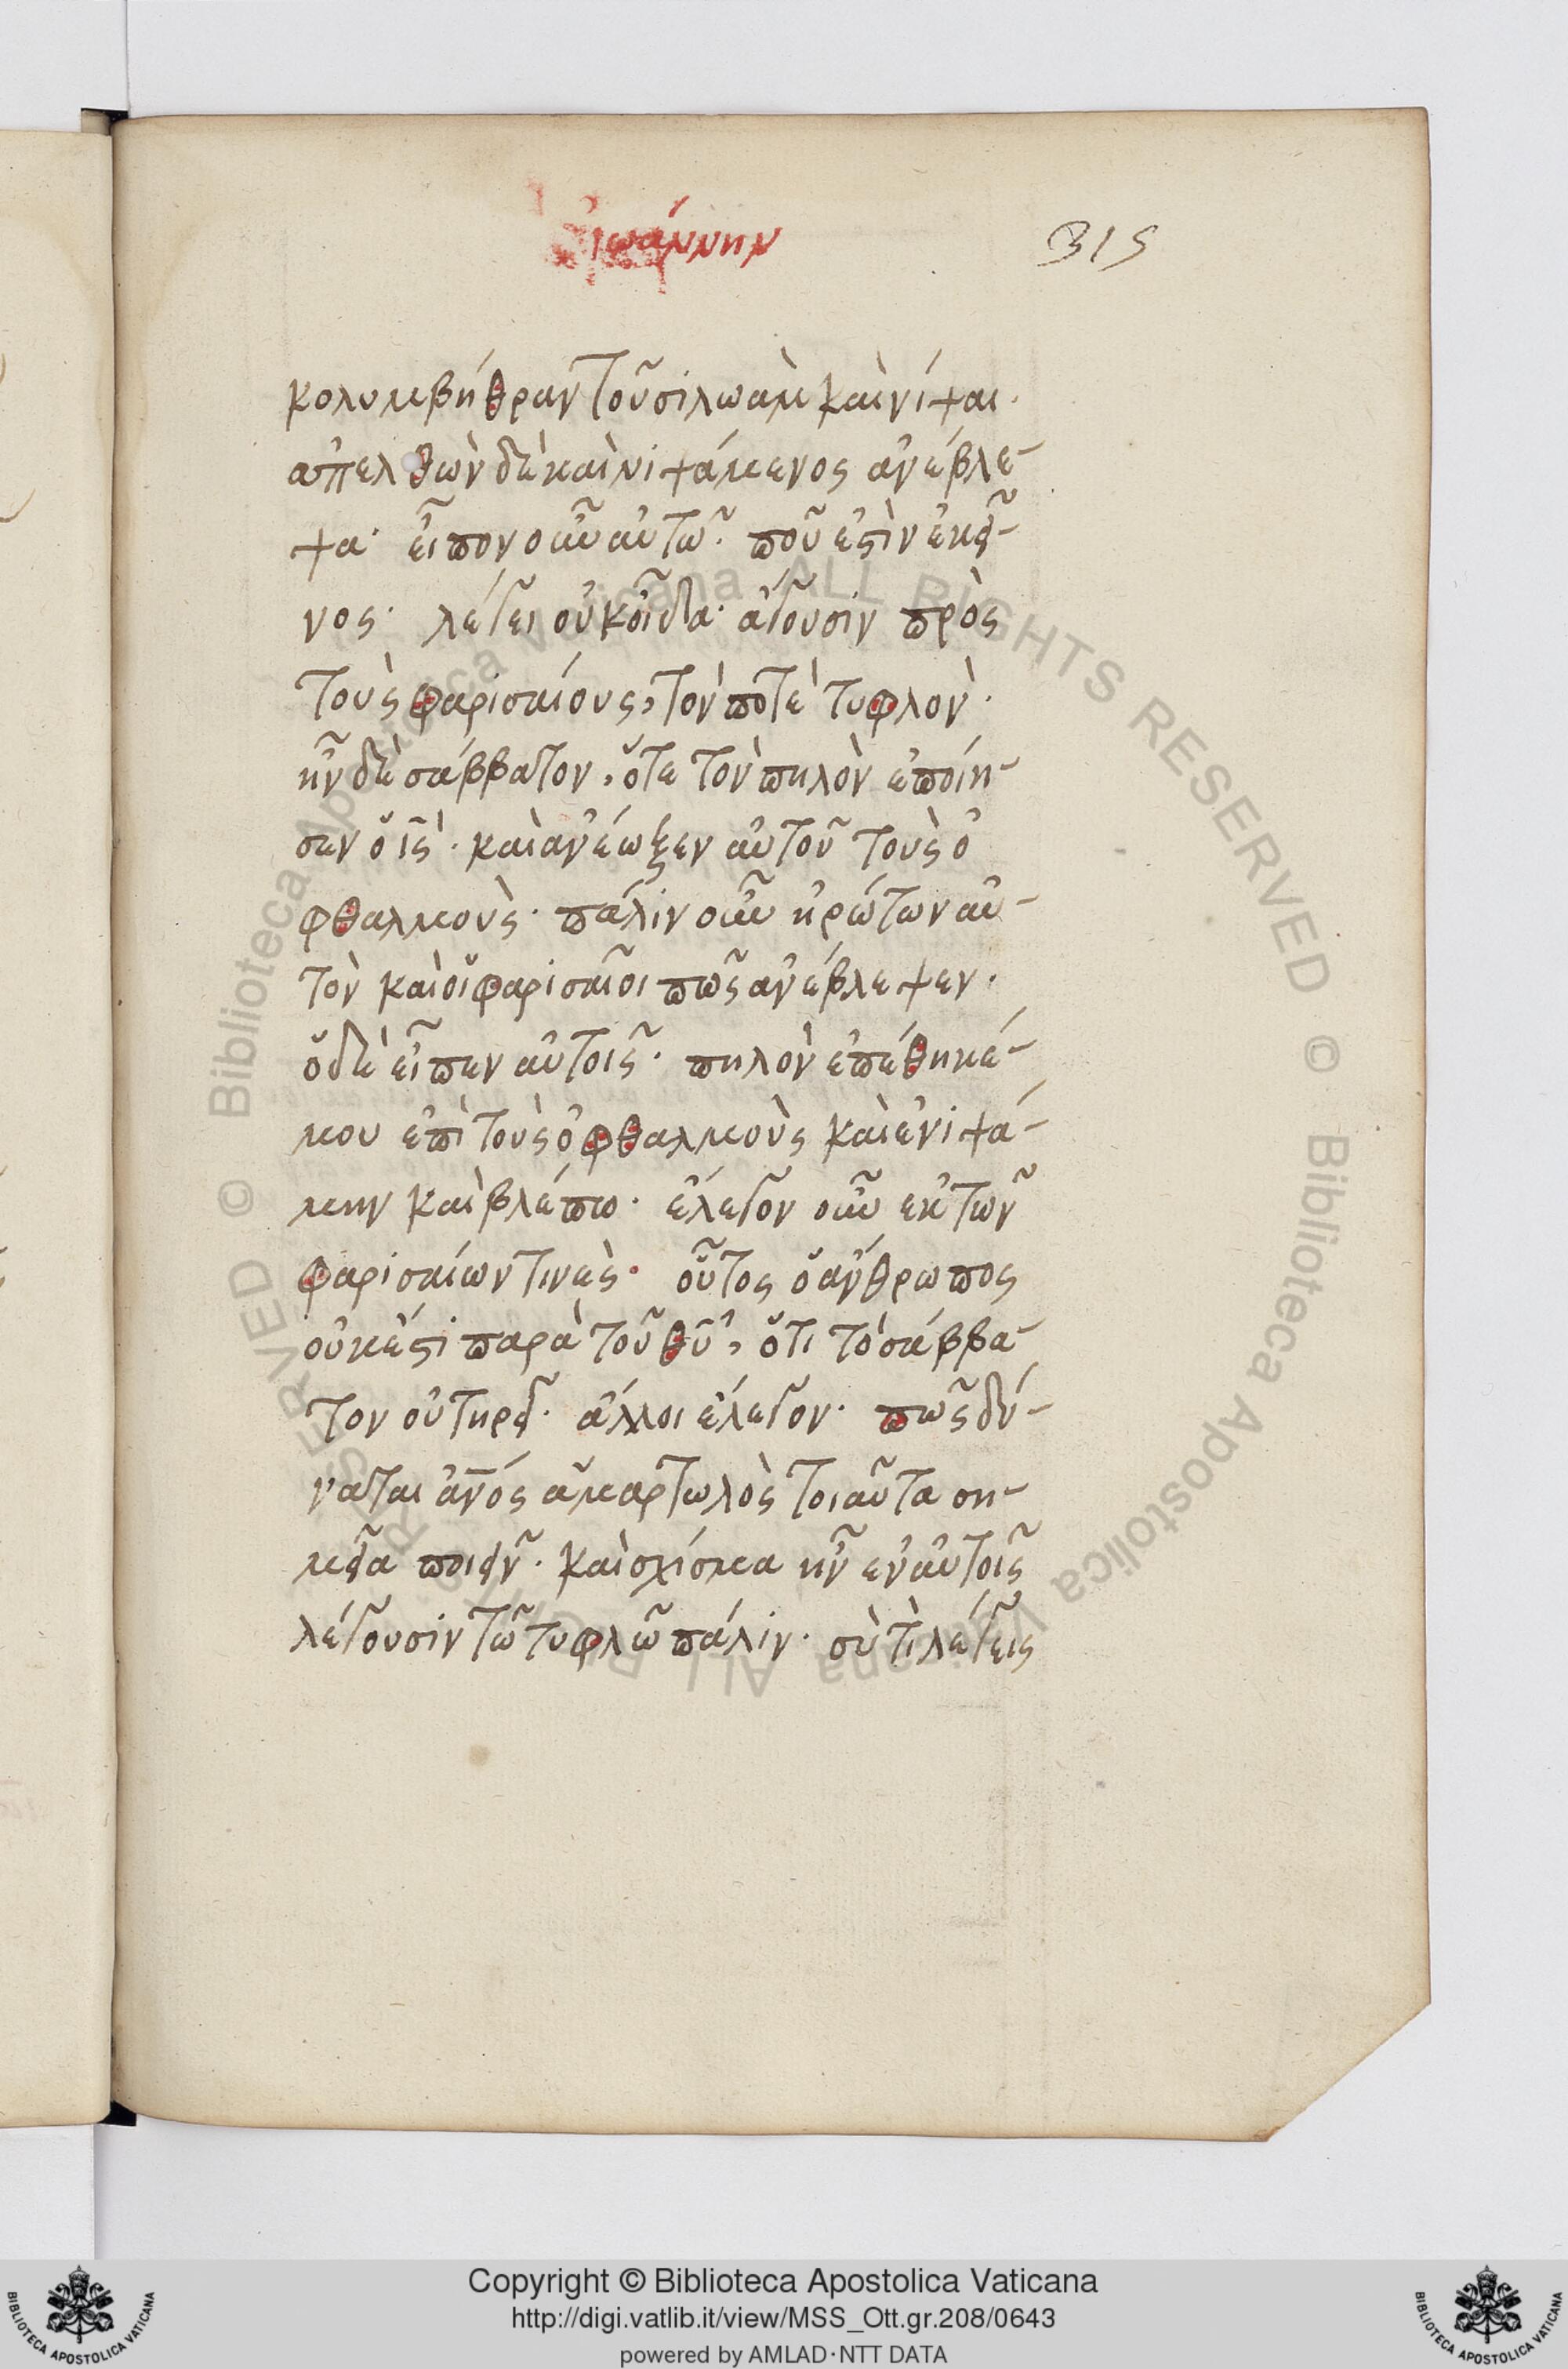 ἰωάννην
315
κολυμβήθραν τοῦ σιλωὰμ καὶ νίψαι·
ἀπελθὼν δὲ καὶ νιψάμενος ἀνέβλε-
ψα· εἶπον οὖν αὐτῶ· ποῦ ἐστὶν ἐκεῖ-
νος· λέγει οὐκ οἶδα· ἄγουσιν πρὸς
τοὺς φαρισαίους, τὸν ποτὲ τυφλὸν·
ἦν δὲ σάββατον, ὅτε τὸν πηλὸν ἐποίη-
σεν ὁ ἰς· καὶ ἀνέωξεν αὐτοῦ τοὺς ὀ
φθαλμοὺς· πάλιν οὖν ἠρώτων αὐ-
τὸν καὶ οἱ φαρισαῖοι πῶς ἀνέβλεψεν·
ὁ δὲ εἶπεν αὐτοῖς· πηλὸν ἐπέθηκέ-
μου ἐπὶ τοὺς ὀφθαλμοὺς καὶ ἐνιψά-
μην καὶ βλέπω· ἔλεγον οὖν ἐκ τῶν
φαρισαίων τινὲς· οὗτος ὁ ἄνθρωπος
οὐκ ἔστι παρὰ τοῦ θῦ, ὅτι τὸ σάββα-
τον οὐ τηρεῖ· ἄλλοι ἔλεγον· πῶς δύ-
ναται ἀνός ἁμαρτωλὸς τοιαῦτα ση-
μεῖα ποιεῖν· καὶ σχίσμα ἦν ἐν αὐτοῖς
λέγουσιν τῶ τυφλῶ πάλιν· σὺ τὶ λέγεις
© Biblioteca Apostolica Vaticana ALL RIGHTS RESERVED © Biblioteca Apostolica Vaticana ALL RIGHTS RESERVED
Copyright © Biblioteca Apostolica Vaticana
http://digi.vatlib.it/view/MSS_Ott.gr.208/0643
powered by AMLAD·NTT DATA
BIBLIOTECA APOSTOLICA VATICANA
BIBLIOTECA APOSTOLICA VATICANA